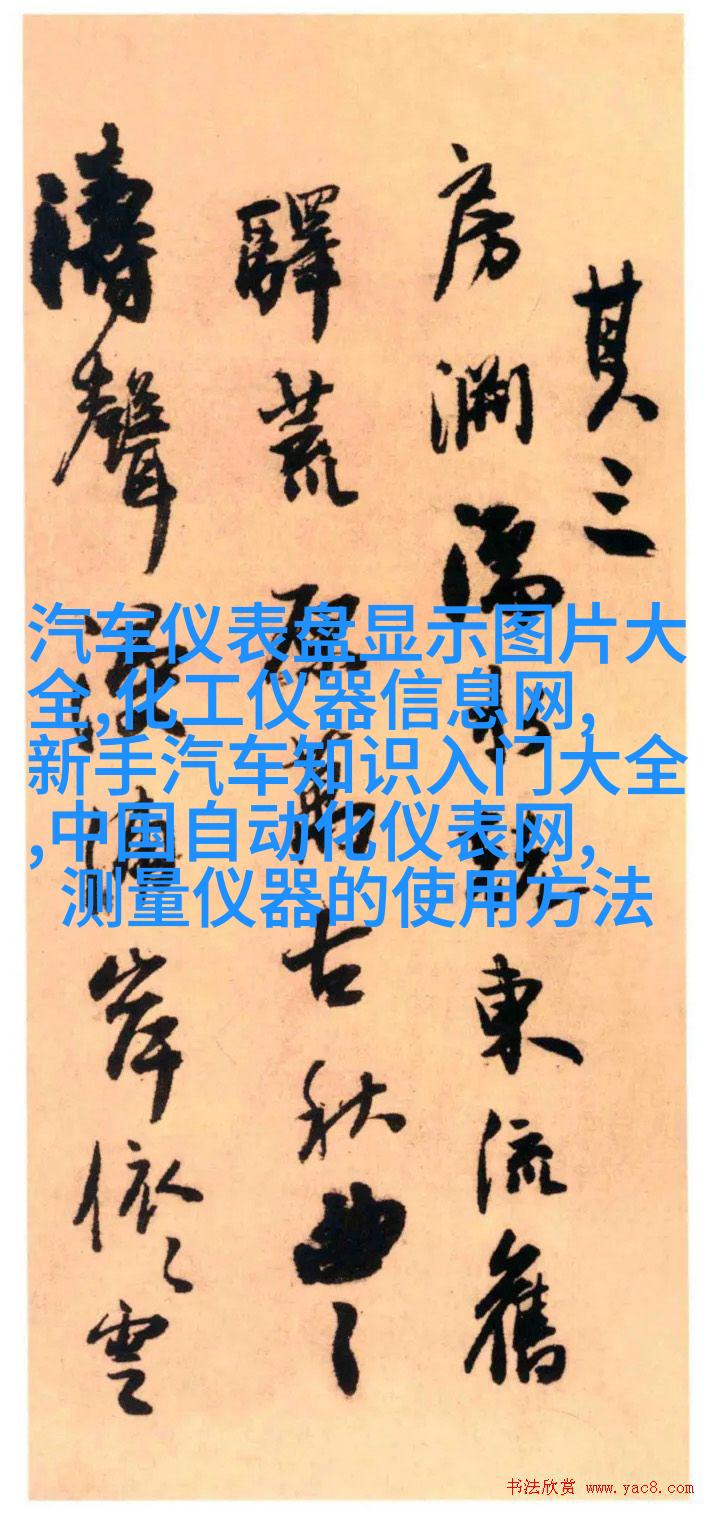 其三
房 東流舊
驛荒原萬古秋曲々
濤聲 岸依々雲
汽车仪表盘显示图片大
全,化工仪器信息网,
新手汽车知识入门大全
,中国自动化仪表网,
测量仪器的使用方法
书法欣赏 www.yac8.com